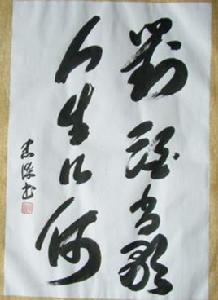 對酒當歌
人生几何